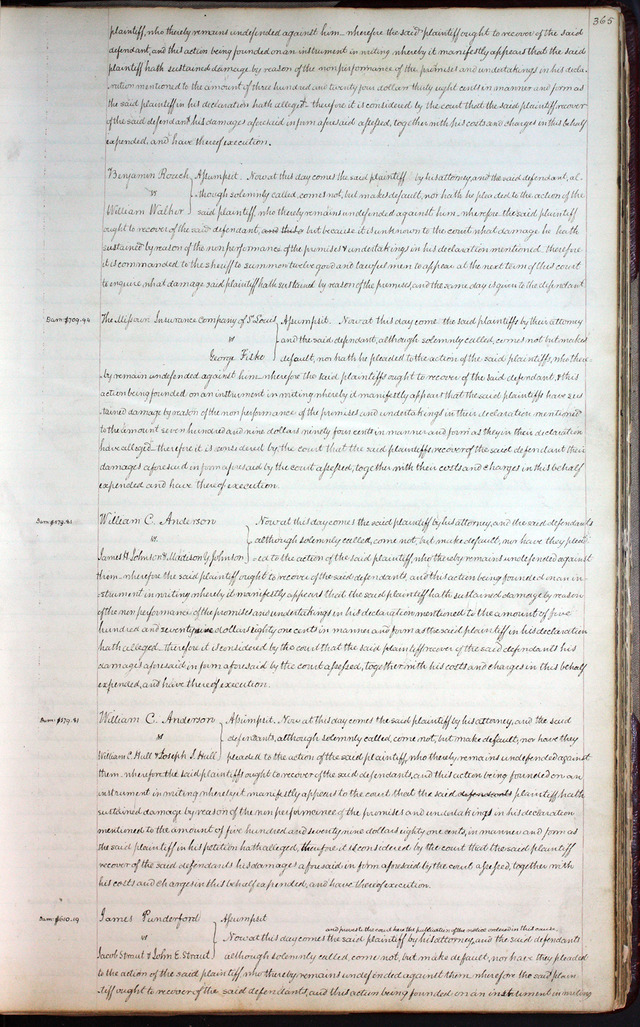 365
plaintiff, who thereby remains undefended against him. wherefore the said plaintiff ought to recover of the said
defendant, and this action being founded on an instrument in writing whereby it manifestly appears that the said
plaintiff hath sustained damage by reason of the nonperformance of the promises and undertakings in his decla-
ration mentioned to the amount of three hundred and twenty four dollars thirty eight cents in manner and form as
the said plaintiff in his declaration hath alleged. therefore it is considered by the court that the said plaintiff recover
of the said defendant his damages aforesaid in form aforesaid assessed, together with his costs and charges in this behalf
expended, and have thereof execution.
Benjamin Roach } Assumpsit. Now at this day comes the said plaintiff by his attorney, and the said defendant, al-
vs though solemnly called, comes not, but makes default, nor hath he pleaded to the action of the
William Walker said plaintiff, who thereby remains undefended against him. wherefore the said plaintiff
ought to recover of the said defendant, and this a but because it is unknown to the court what damage he hath
sustained by reason of the non performance of the promises & undertakings in his declaration mentioned. therefore
it is commanded to the sheriff to summon twelve good and lawful men to appear at the next term of this court
to enquire what damage said plaintiff hath sustained by reason of the premises, and the same day is given to the defendant.
Dam: $709.94 The Missouri Insurance Company of St Louis } Assumpsit. Now at this day come the said plaintiffs by their attorney
vs and the said defendant, although solemnly called, comes not but makes
George Fiske default, nor hath he pleaded to the action of the said plaintiffs, who there-
by remain undefended against him. wherefore the said plaintiffs ought to recover of the said defendant, & this
action being founded on an instrument in writing whereby it manifestly appears that the said plaintiffs have sus
tained damage by reason of the non performance of the promises and undertakings in their declaration mentioned
to the amount seven hundred and nine dollars ninety four cents in manner and form as they in their declaration
have alleged. therefore it is considered by the court that the said plaintiffs recover of the said defendant their
damages aforesaid in form aforesaid by the court assessed, together with their costs and charges in this behalf
expended and have thereof execution.
Dam: $579.81 William C. Anderson } Now at this day comes the said plaintiff by his attorney, and the said defendants
vs although solemnly called, come not, but make default, nor have they plead-
James H. Johnson & Madison G Johnson ed to the action of the said plaintiff, who thereby remains undefended against
them. wherefore the said plaintiff ought to recover of the said defendants, and this action being founded on an in
strument in writing whereby it manifestly appears that the said plaintiff hath sustained damage by reason
of the non performance of the promises and undertakings in his declaration mentioned to the amount of five
hundred and seventy nine dollars eighty one cents in manner and form as the said plaintiff in his declaration
hath alleged. therefore it is considered by the court that the said plaintiff recover of the said defendants his
damages aforesaid in form aforesaid by the court assessed, together with his costs and charges in this behalf
expended, and have thereof execution.
Dam: $579.81 William C. Anderson } Assumpsit. Now at this day comes the said plaintiff by his attorney, and the said
vs defendants, although solemnly called, come not, but make default, nor have they
William C. Hull & Joseph S. Hull pleaded to the action of the said plaintiff, who thereby remains undefended against
them. wherefore the said plaintiff ought to recover of the said defendants, and this action being founded on an
instrument in writing whereby it manifestly appears to the court that the said defendants plaintiff hath
sustained damage by reason of the non performance of the promises and undertakings in his declaration
mentioned to the amount of five hundred and seventy nine dollars eighty one cents, in manner and form as
the said plaintiff in his petition hath alleged, therefore it is considered by the court that the said plaintiff
recover of the said defendants his damages aforesaid in form aforesaid by the court assessed, together with
his costs and charges in this behalf expended, and have thereof execution.
Dam: $610.19 James Punderford } Assumpsit
and proves to the court here the publication of the notice ordered in this cause
vs Now at this day comes the said plaintiff by his attorney, and the said defendants
Jacob Straut & John E. Straut although solemnly called, come not, but make default, nor have they pleaded
to the action of the said plaintiff who thereby remains undefended against them wherefore the said plain-
tiff ought to recover of the said defendants, and this action being founded on an instrument in writing